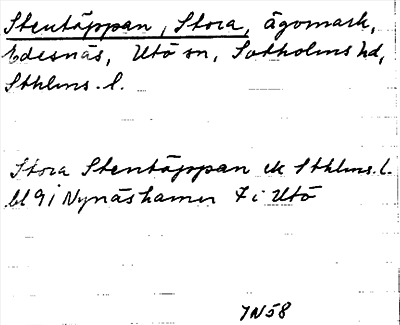 Stentäppan, Stora, ägomark,
Edesnäs, Utö sn, Sotholms hd,
Sthlms. l.
Stora Stentäppan ek Sthlms. l.
bl 9 i Nynäshamn 7 i Utö
JN58